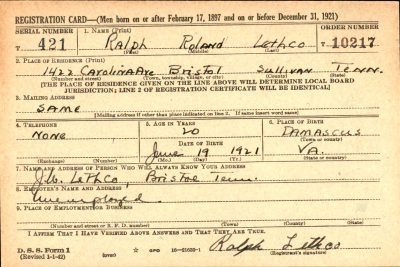 REGISTRATION CARD—(Men born on or after February 17, 1897 and on or before December 31, 1921)
SERIAL NUMBER 1. NAME (Print) ORDER NUMBER
T 421 RALPH ROLAND LETHCO T 10217
(First) (Middle) (Last)
2. PLACE OF RESIDENCE (Print)
1422 CAROLINA AVE BRISTOL SULLIVAN TENN.
(Number and street) (Town, township, village, or city) (County) (State)
[THE PLACE OF RESIDENCE GIVEN ON THE LINE ABOVE WILL DETERMINE LOCAL BOARD
JURISDICTION; LINE 2 OF REGISTRATION CERTIFICATE WILL BE IDENTICAL]
3. MAILING ADDRESS
SAME
[Mailing address if other than place indicated on line 2. If same insert word same]
4. TELEPHONE 5. AGE IN YEARS 6. PLACE OF BIRTH
NONE 20 DAMASCUS
DATE OF BIRTH (Town or county)
June 19 1921 VA.
(Exchange) (Number) (Mo.) (Day) (Yr.) (State or country)
7. NAME AND ADDRESS OF PERSON WHO WILL ALWAYS KNOW YOUR ADDRESS
Lethco, Bristol Tenn.
8. EMPLOYER'S NAME AND ADDRESS
Unemployed
9. PLACE OF EMPLOYMENT OR BUSINESS
(Number and street or R. F. D. number) (Town) (County) (State)
I AFFIRM THAT I HAVE VERIFIED ABOVE ANSWERS AND THAT THEY ARE TRUE.
D. S. S. Form 1
(Revised 1-1-42) (over) GPO 16—21630-1 Ralph Lethco
(Registrant's signature)